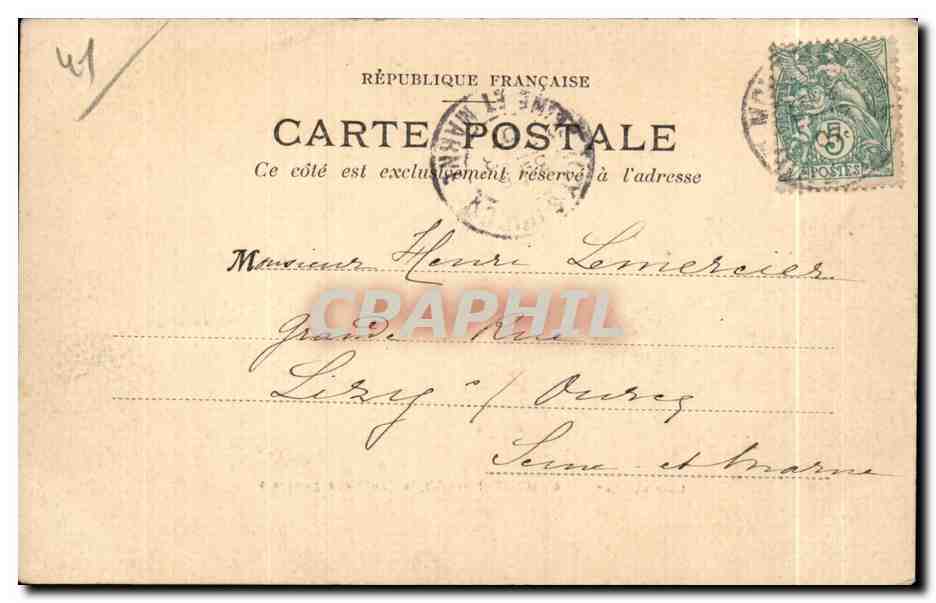 41
RÉPUBLIQUE FRANÇAISE
CARTE POSTALE
Ce côté est exclusivement réservé à l'adresse
5c
POSTES
ET MARNE
Monsieur Henri Lemercier
CPRAPHIL
Grande Rue
Lizy s/ Ourcq
Seine et Marne